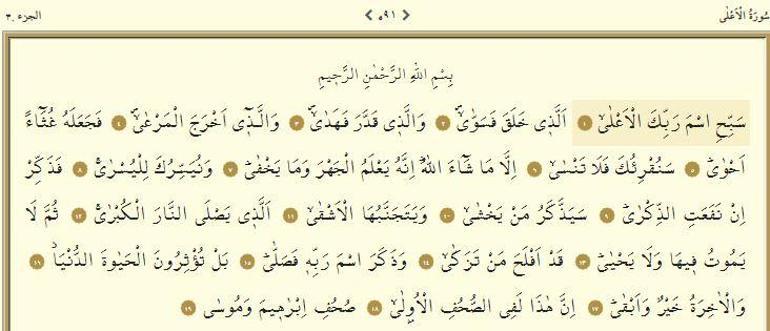 سُورَةُ الْاَعْلٰى ٥٩١ الجزء ٣٠
بِسْمِ اللّٰهِ الرَّحْمٰنِ الرَّحِيمِ
سَبِّحِ اسْمَ رَبِّكَ الْاَعْلٰىۙ ١ اَلَّذ۪ي خَلَقَ فَسَوّٰىۙۖ ٢ وَالَّذ۪ي قَدَّرَ فَهَدٰىۙۖ ٣ وَالَّذ۪ٓي اَخْرَجَ الْمَرْعٰىۙۖ ٤ فَجَعَلَهُ غُثَٓاءً
اَحْوٰىۜ ٥ سَنُقْرِئُكَ فَلَا تَنْسٰىۙ ٦ اِلَّا مَا شَٓاءَ اللّٰهُۜ اِنَّهُ يَعْلَمُ الْجَهْرَ وَمَا يَخْفٰىۜ ٧ وَنُيَسِّرُكَ لِلْيُسْرٰىۚ ٨ فَذَكِّرْ
اِنْ نَفَعَتِ الذِّكْرٰىۜ ٩ سَيَذَّكَّرُ مَنْ يَخْشٰىۙ ١٠ وَيَتَجَنَّبُهَا الْاَشْقٰىۙ ١١ اَلَّذ۪ي يَصْلَى النَّارَ الْكُبْرٰىۚ ١٢ ثُمَّ لَا
يَمُوتُ ف۪يهَا وَلَا يَحْيٰىۜ ١٣ قَدْ اَفْلَحَ مَنْ تَزَكّٰىۙ ١٤ وَذَكَرَ اسْمَ رَبِّه۪ فَصَلّٰىۜ ١٥ بَلْ تُؤْثِرُونَ الْحَيٰوةَ الدُّنْيَاۘ ١٦
وَالْاٰخِرَةُ خَيْرٌ وَاَبْقٰىۜ ١٧ اِنَّ هٰذَا لَفِي الصُّحُفِ الْاُو۫لٰىۙ ١٨ صُحُفِ اِبْرٰه۪يمَ وَمُوسٰى ١٩